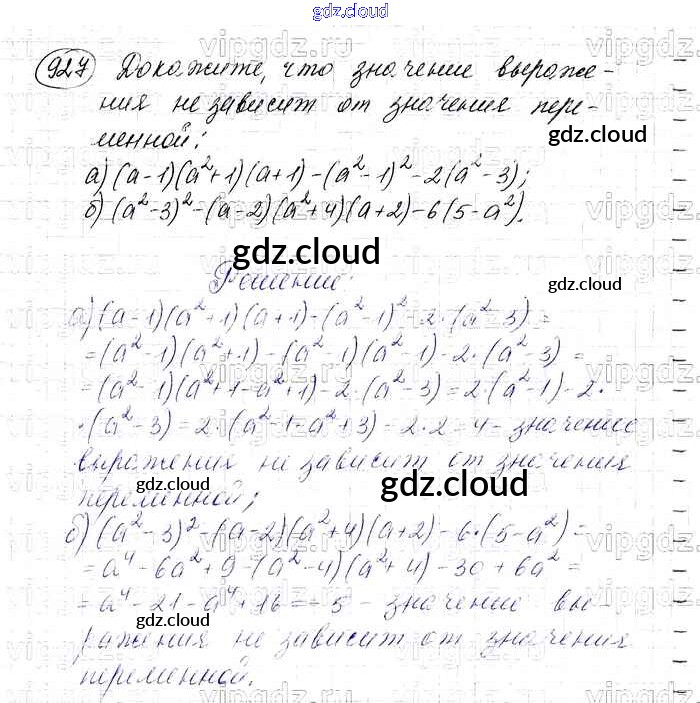 gdz.cloud
927 Докажите, что значение выраже-
ния не зависит от значения пере-
менной:
gdz.cloud
а) (a-1)(a²+1)(a+1)-(a²-1)²-2(a²-3);
б) (a²-3)²-(a-2)(a²+4)(a+2)-6(5-a²).
gdz.cloud
Решение:
gdz.cloud
а) (a-1)(a²+1)(a+1)-(a²-1)²-2·(a²-3)=
=(a²-1)(a²+1)-(a²-1)(a²-1)-2·(a²-3)=
=(a²-1)(a²+1-a²+1)-2·(a²-3)=2·(a²-1)-2·
·(a²-3)=2·(a²-1-a²+3)=2·2=4- значение
выражения не зависит от значения
переменной;
gdz.cloud
б) (a²-3)²-(a-2)(a²+4)(a+2)-6·(5-a²)=
=a⁴-6a²+9-(a²-4)(a²+4)-30+6a²=
=a⁴-21-a⁴+16=-5- значение вы-
ражения не зависит от значения
gdz.cloud
переменной.